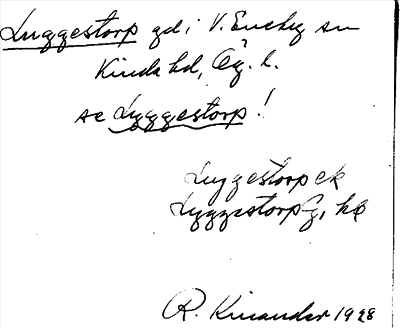 Luggestorp gd i V. Eneby sn
Kinda hd, Ög. l.
se Lyggestorp!
Luggestorp ek
Lyggestorp g, hq
R. Kinander 1928